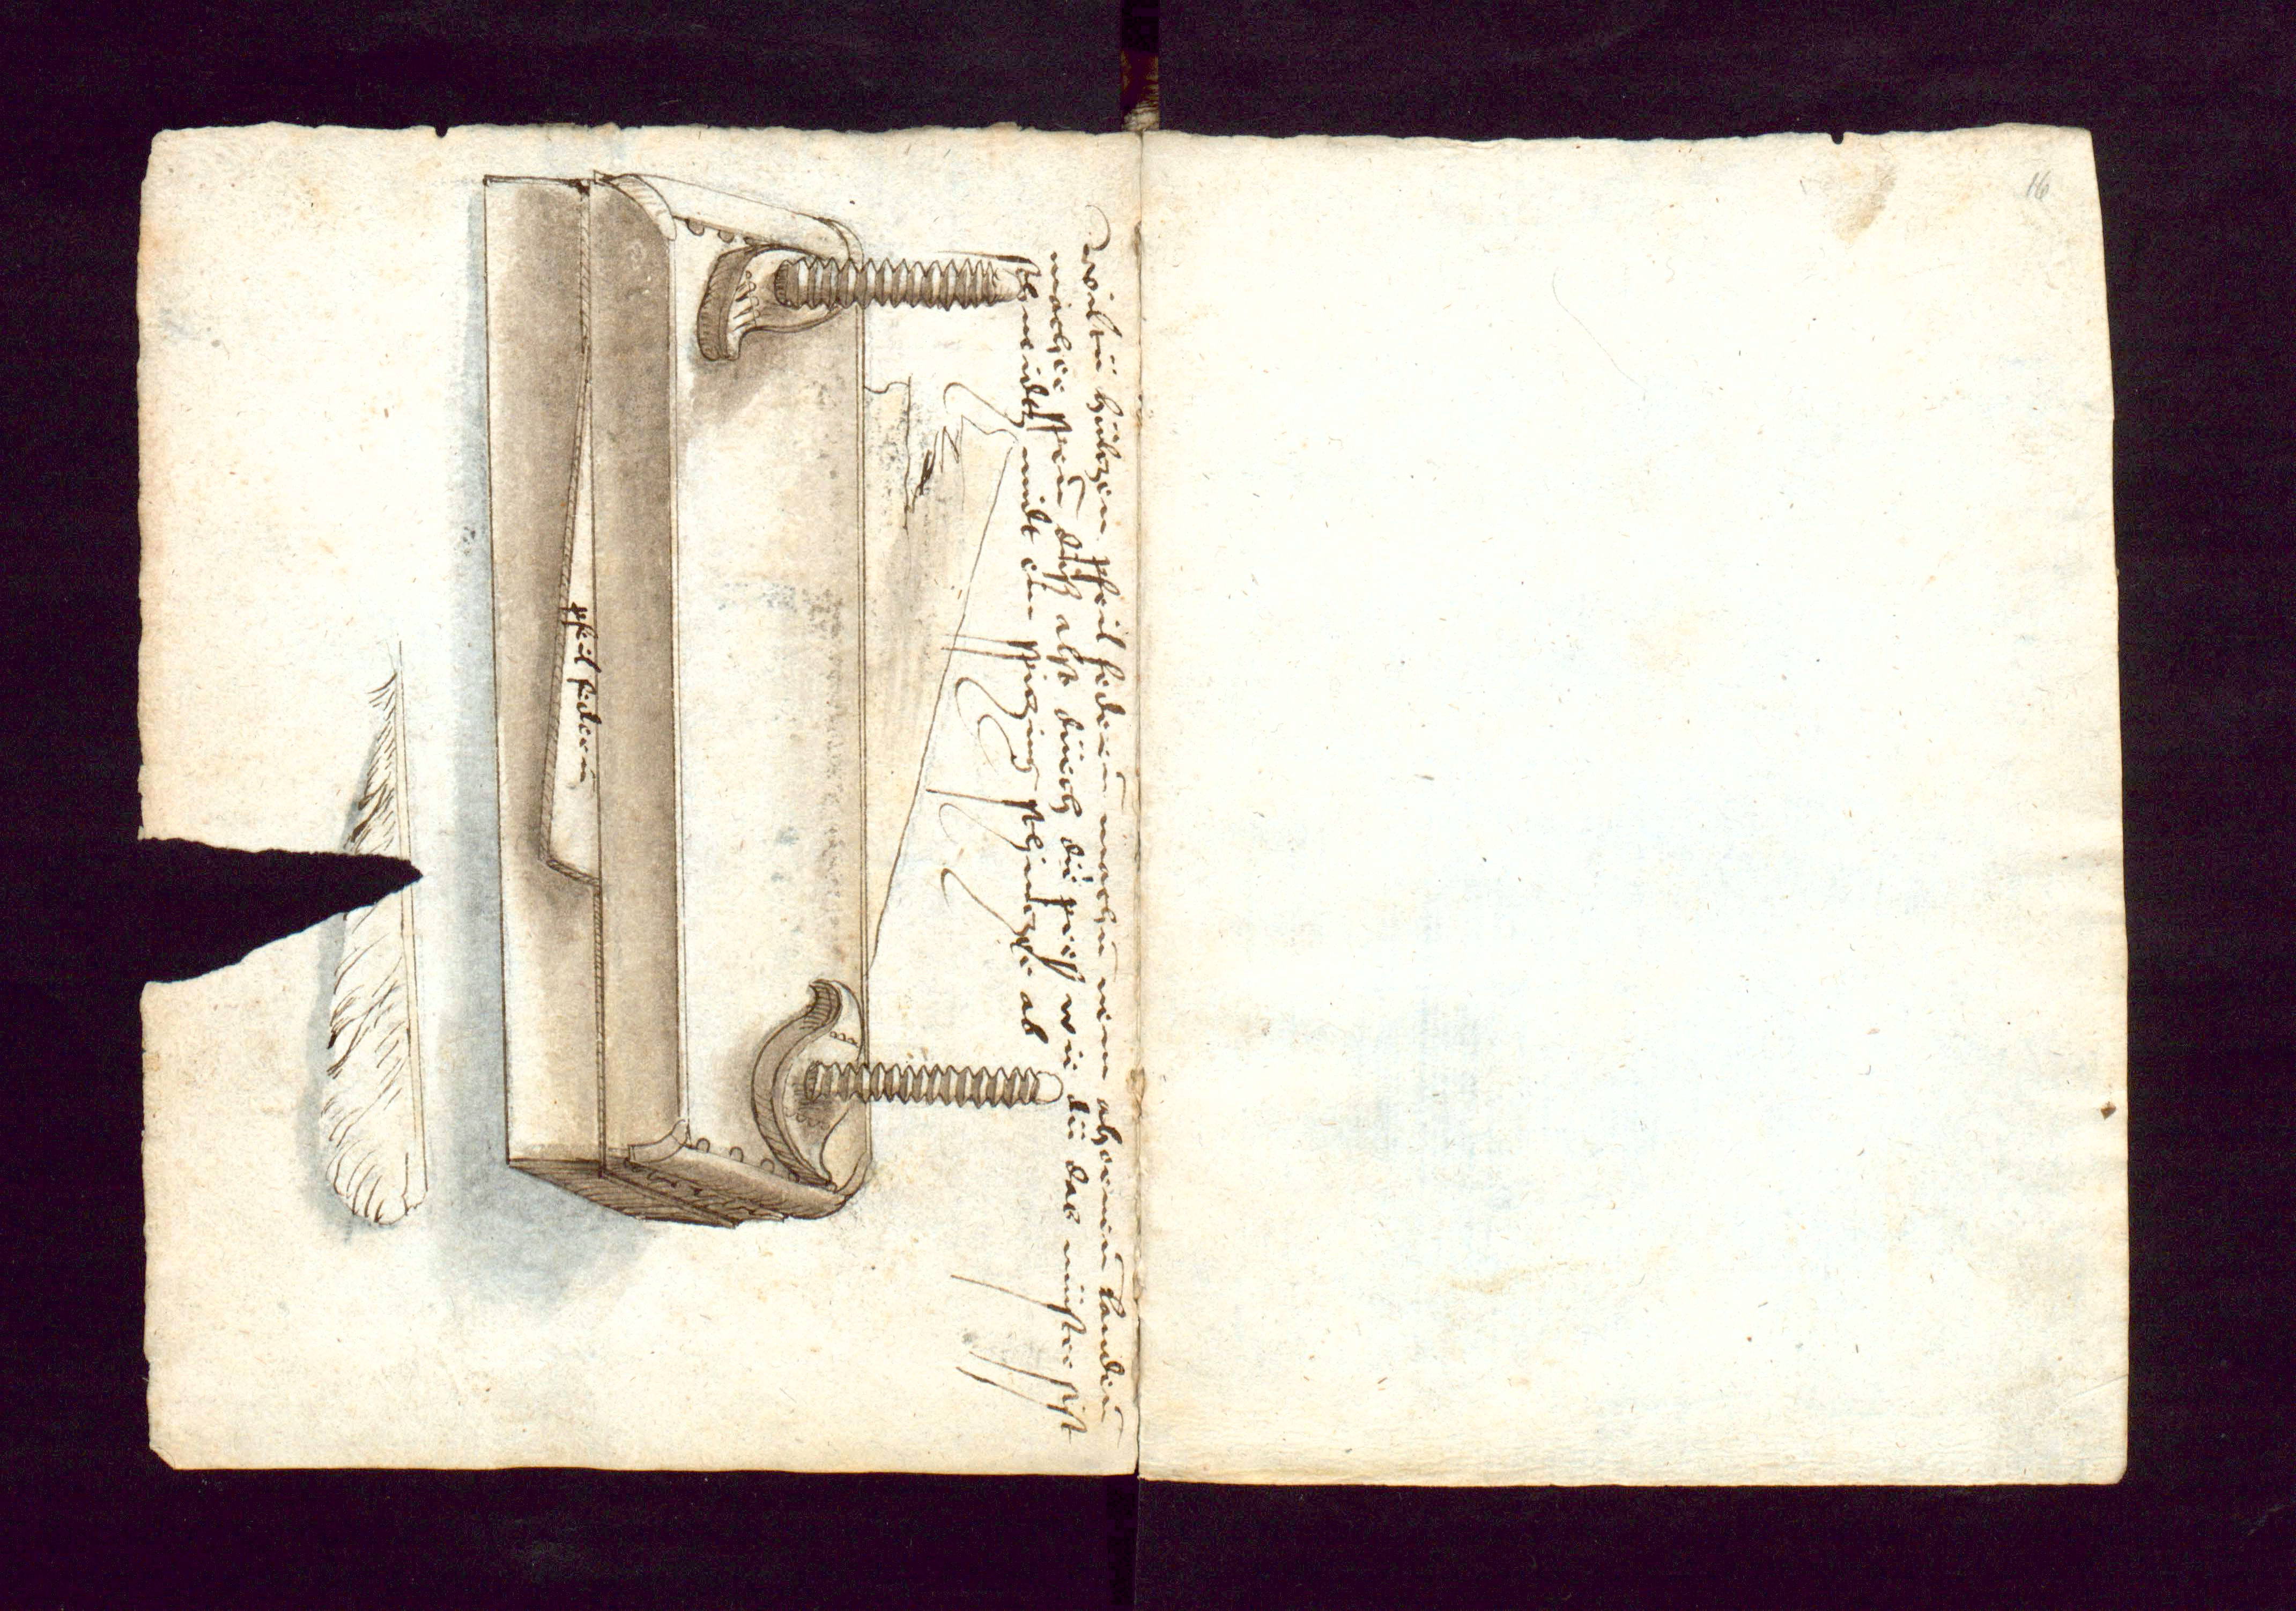 wiltu hultzen pfeil federn machen nim ahornen landern
mach sy den dis also durch die pres wie du das muster sihst
schneidts mit ein spitzing schnitzer ab
pfeil federn
16